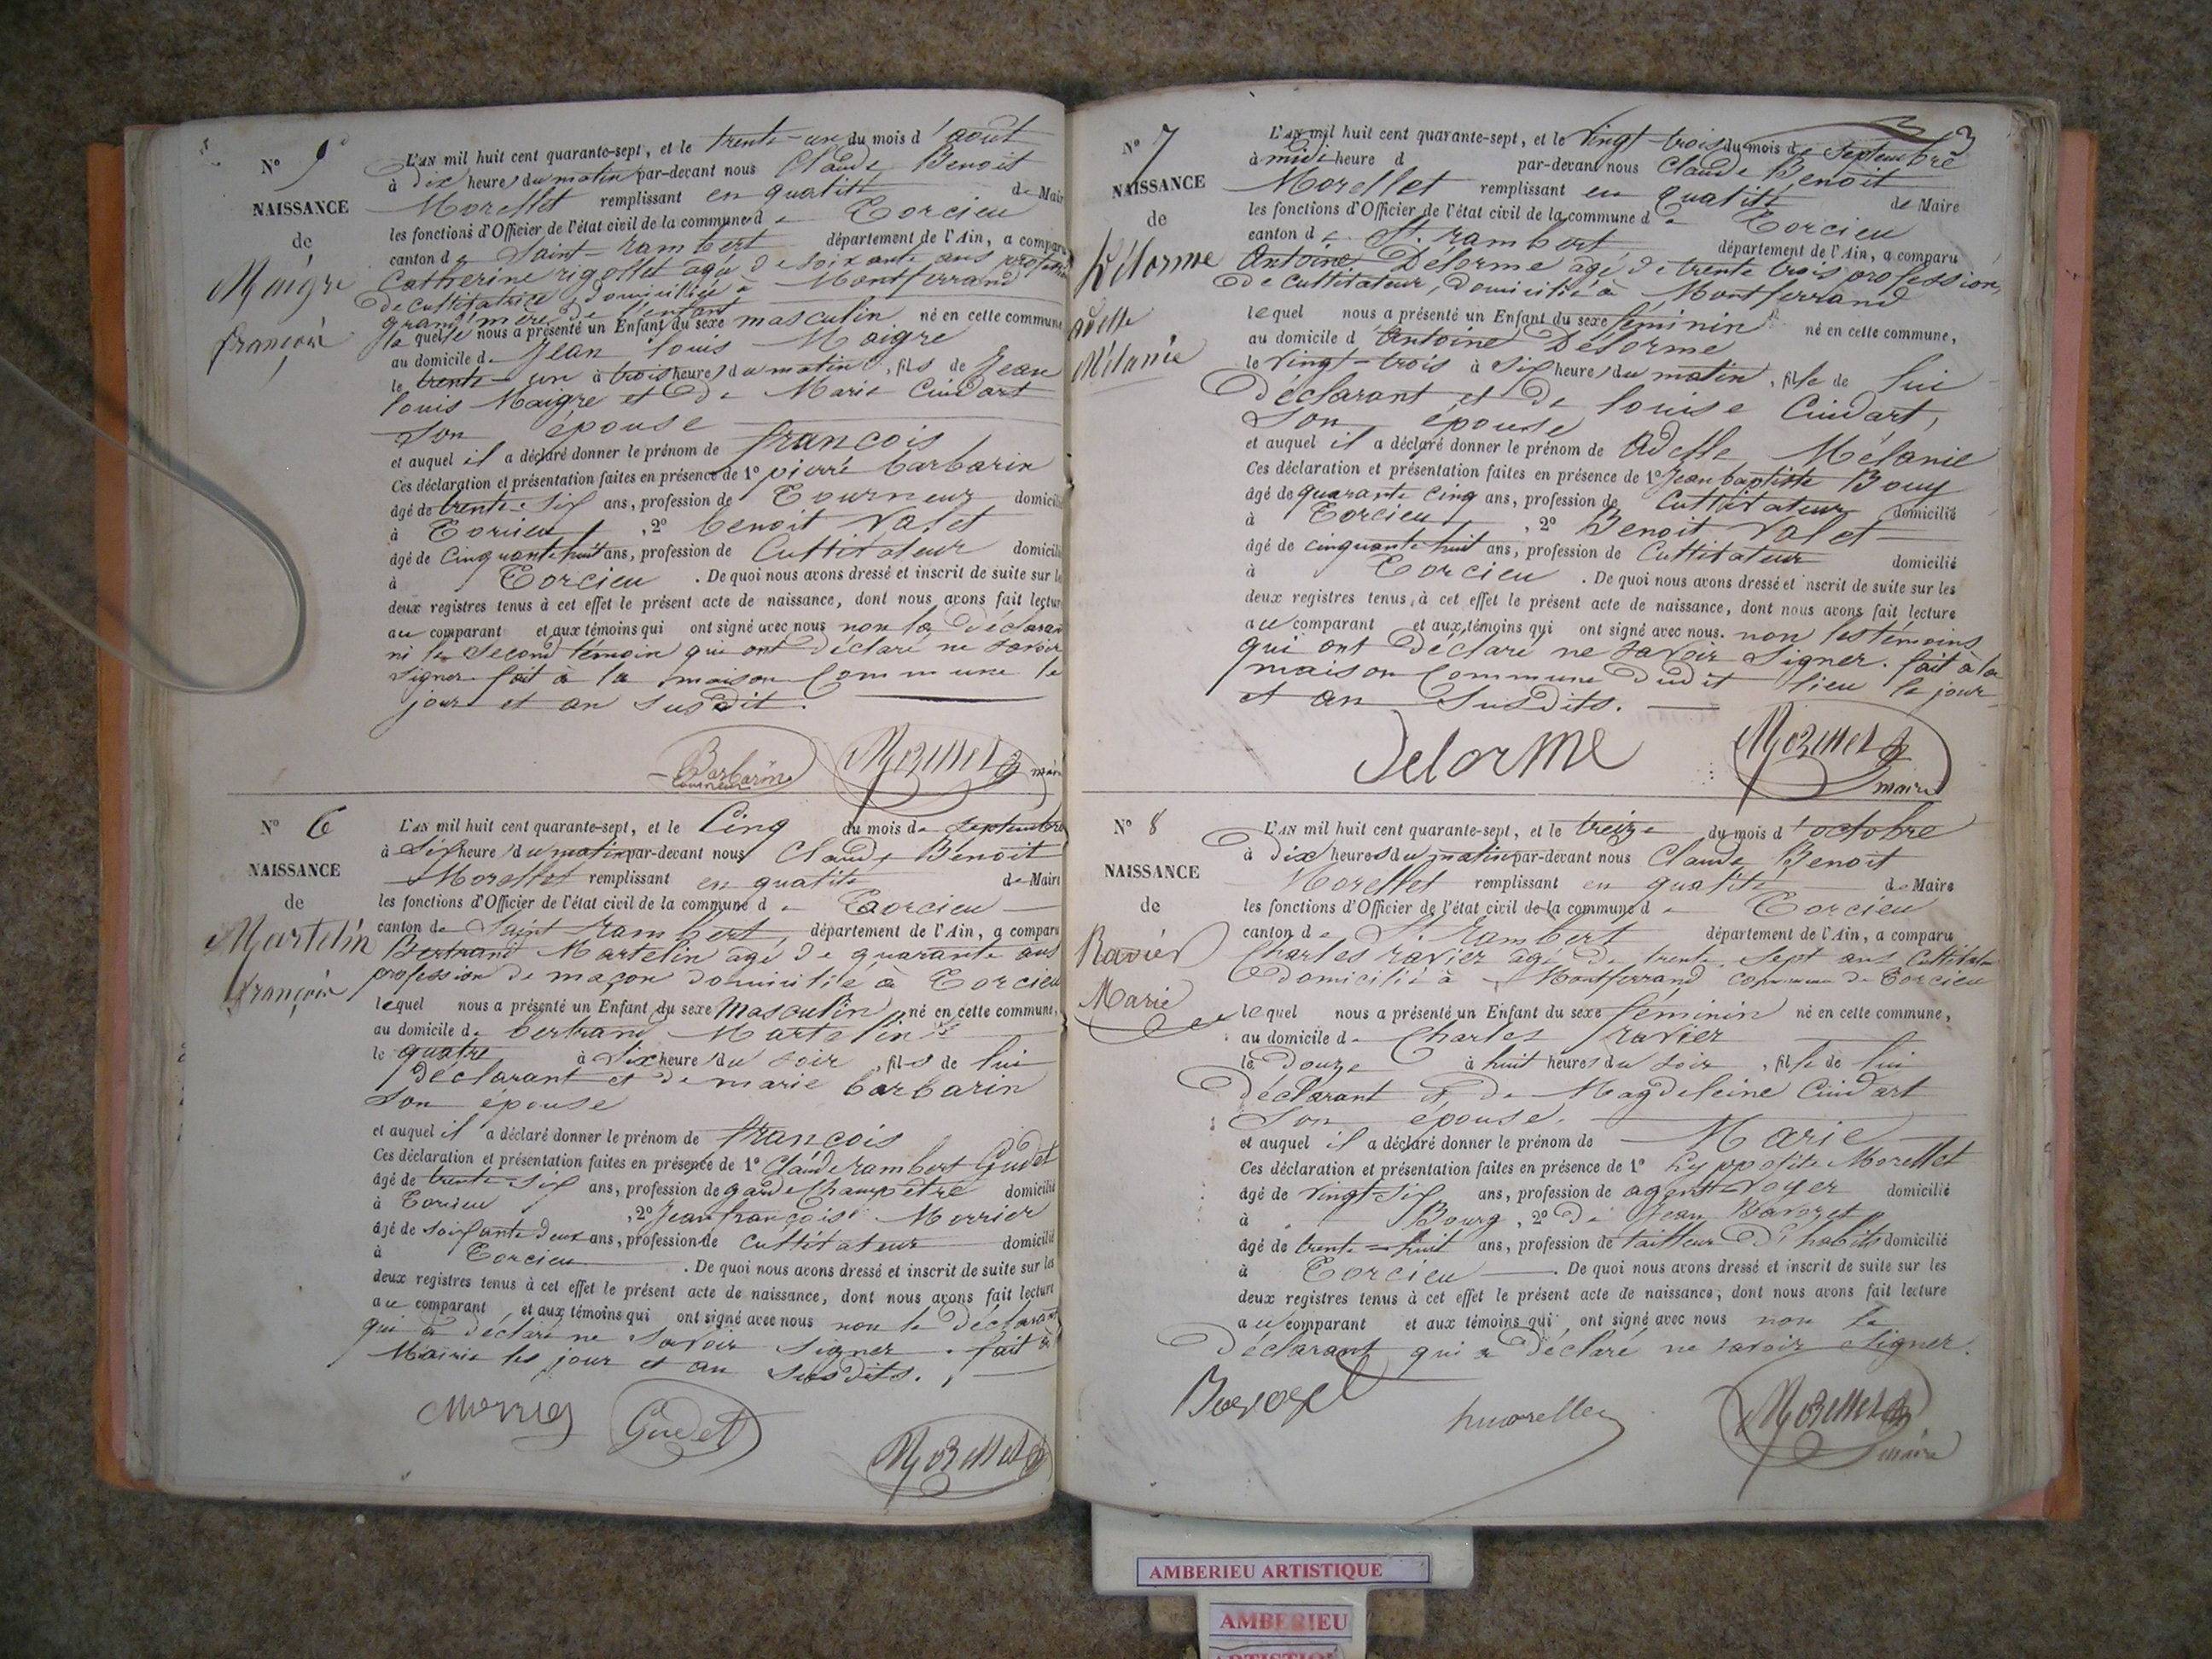 N° 5
NAISSANCE
de
Maigre
françois
L'AN mil huit cent quarante-sept, et le trente-un du mois d'août
à dix heures du matin par-devant nous Claude Benoit
Morellet remplissant en qualité de Maire
les fonctions d'Officier de l'état civil de la commune de Torcieu
canton de Saint-rambert département de l'Ain, a comparu
Catherine rigollet agée de soixante ans profession
de cultivatrice, domiciliée à Montferrand
grand'mère de l'enfant
laquelle nous a présenté un Enfant du sexe masculin né en cette commune
au domicile de Jean louis Maigre
le trente-un à trois heures du matin, fils de Jean
louis Maigre et de Marie Cuidart
son épouse
et auquel il a déclaré donner le prénom de françois
Ces déclaration et présentation faites en présence de 1° pierre barbarin
âgé de trente-six ans, profession de Tourneur domicilié
à Torcieu, 2° benoit Valet
âgé de Cinquante huit ans, profession de Cultivateur domicilié
à Torcieu. De quoi nous avons dressé et inscrit de suite sur les
deux registres tenus à cet effet le présent acte de naissance, dont nous avons fait lecture
au comparant et aux témoins qui ont signé avec nous non la déclarante
ni le second témoin qui ont déclaré ne savoir
signer fait à la maison Commune le
jour et an susdit.
Barbarin
tourneur
Morellet
maire
N° 6
NAISSANCE
de
Martelin
françois
L'AN mil huit cent quarante-sept, et le Cinq du mois de septembre
à six heures du matin par-devant nous Claude Benoit
Morellet remplissant en qualité de Maire
les fonctions d'Officier de l'état civil de la commune de Torcieu
canton de Saint-rambert, département de l'Ain, a comparu
Bertrand Martelin agé de quarante ans
profession de maçon domicilié à Torcieu
lequel nous a présenté un Enfant du sexe Masculin né en cette commune,
au domicile de bertrand Martelin
le quatre à six heures du soir, fils de lui
déclarant et de marie barbarin
son épouse
et auquel il a déclaré donner le prénom de françois
Ces déclaration et présentation faites en présence de 1° Claude rambert Gudet
âgé de trente-six ans, profession de garde Champêtre domicilié
à Torcieu, 2° Jean françois Morrier
âgé de soixante deux ans, profession de Cultivateur domicilié
à Torcieu. De quoi nous avons dressé et inscrit de suite sur les
deux registres tenus à cet effet le présent acte de naissance, dont nous avons fait lecture
au comparant et aux témoins qui ont signé avec nous non le déclarant
qui a déclaré ne savoir signer. fait à
Mairie les jour et an susdits.
Gudet
Morellet
3
N° 7
NAISSANCE
de
Délorme
adelle
Mélanie
L'AN mil huit cent quarante-sept, et le Vingt-trois du mois de septembre
à midi heure d par-devant nous Claude Benoit
Morellet remplissant en qualité de Maire
les fonctions d'Officier de l'état civil de la commune de Torcieu
canton de St. rambert, département de l'Ain, a comparu
Antoine Délorme agé de trente trois profession,
de Cultivateur, domicilié à Montferrand
lequel nous a présenté un Enfant du sexe féminin né en cette commune,
au domicile d'Antoine Délorme
le Vingt-trois à six heures du matin, fille de lui
déclarant et de louise Cuidart,
son épouse
et auquel il a déclaré donner le prénom de Adelle Mélanie
Ces déclaration et présentation faites en présence de 1° Jean baptiste Bouy
âgé de quarante Cinq ans, profession de Cultivateur domicilié
à Torcieu, 2° Benoit Valet
âgé de cinquante huit ans, profession de Cultivateur domicilié
à Torcieu. De quoi nous avons dressé et inscrit de suite sur les
deux registres tenus à cet effet le présent acte de naissance, dont nous avons fait lecture
au comparant et aux témoins qui ont signé avec nous. non les témoins
qui ont déclaré ne savoir signer. fait à la
maison Commune dudit lieu le jour
et an susdits.
Delorme
Morellet
maire
N° 8
NAISSANCE
de
Ravier
Marie
L'AN mil huit cent quarante-sept, et le treize du mois d'octobre
à dix heures du matin par-devant nous Claude Benoit
Morellet remplissant en qualité de Maire
les fonctions d'Officier de l'état civil de la commune de Torcieu
canton de St. rambert département de l'Ain, a comparu
Charles ravier agé de trente-sept ans Cultivateur
domicilié à Montferrand commune de Torcieu
lequel nous a présenté un Enfant du sexe féminin né en cette commune,
au domicile de Charles ravier
le douze à huit heures du soir, fille de lui
déclarant et de Magdeleine Cuidart
son épouse.
et auquel il a déclaré donner le prénom de Marie
Ces déclaration et présentation faites en présence de 1° hyppolite Morellet
âgé de vingt-six ans, profession de agent-voyer domicilié
à Bourg, 2° de Jean Bavozet
âgé de trente-huit ans, profession de tailleur d'habits domicilié
à Torcieu. De quoi nous avons dressé et inscrit de suite sur les
deux registres tenus à cet effet le présent acte de naissance, dont nous avons fait lecture
au comparant et aux témoins qui ont signé avec nous non le
déclarant qui a déclaré ne savoir signer.
Bavozet
hmorellet
Morellet
maire
AMBERIEU ARTISTIQUE
AMBERIEU
ARTISTIQUE